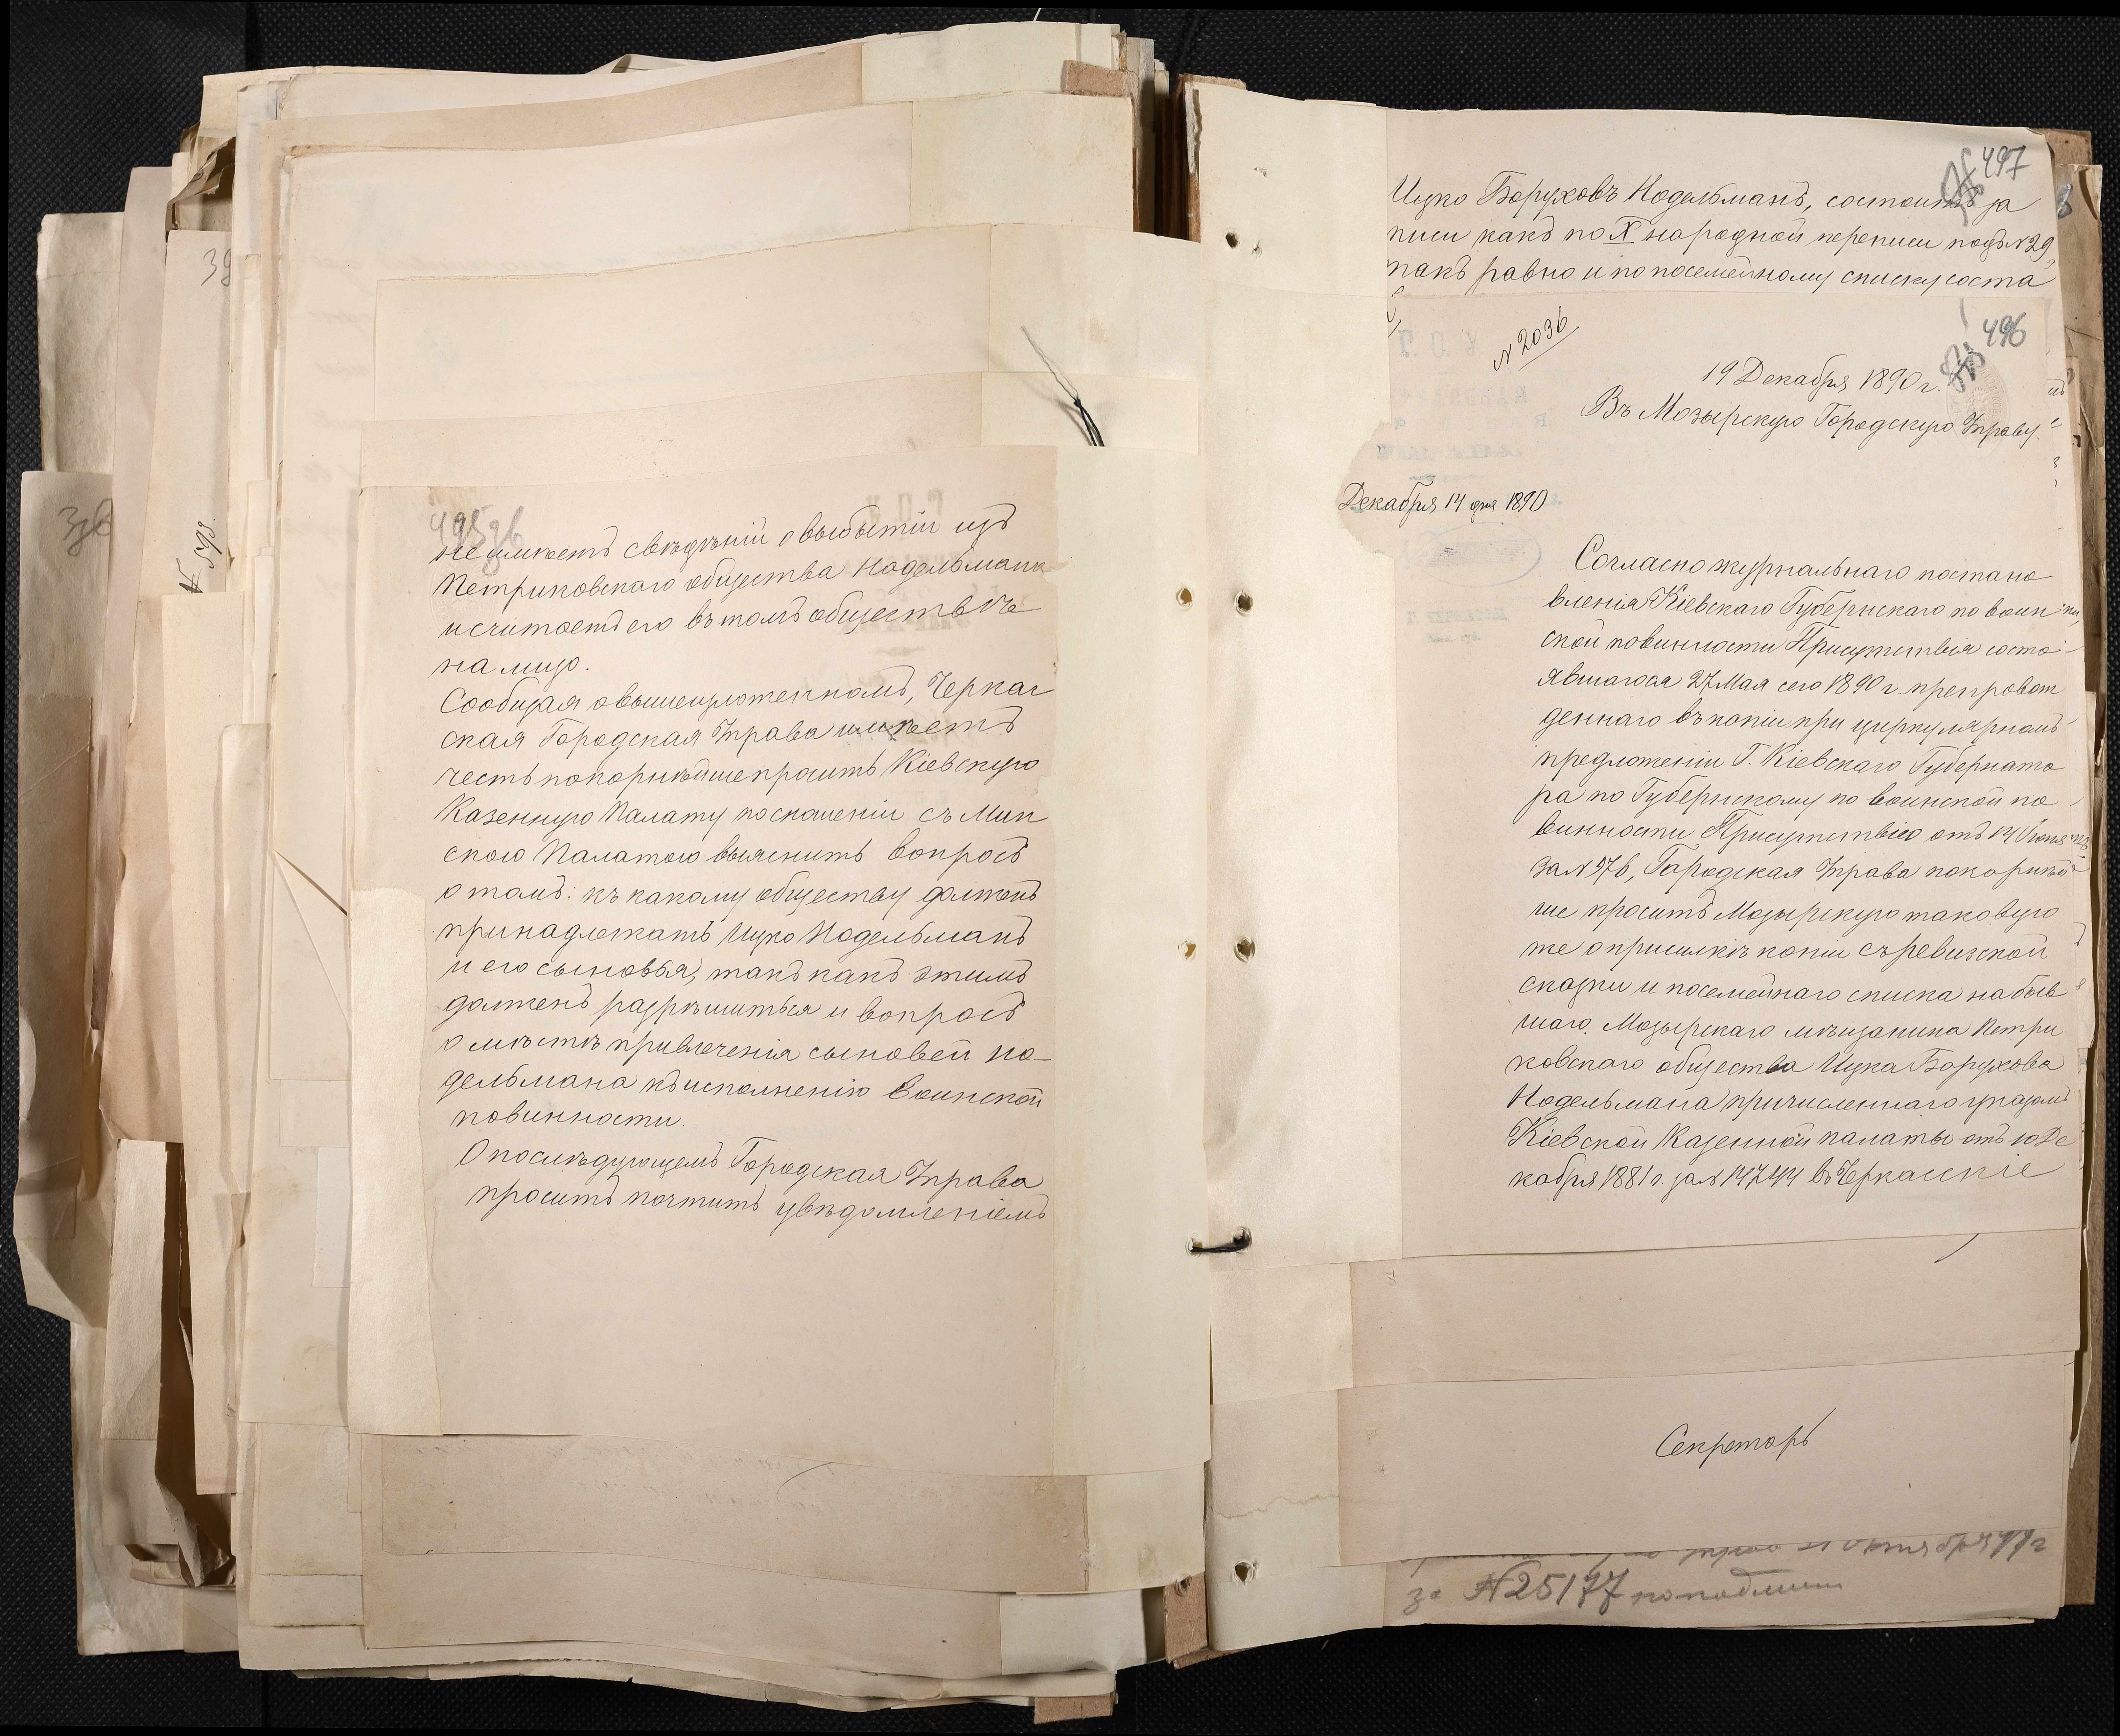 495
не имѣетъ свѣдѣній о выбытіи изъ
Петриковскаго общества Нодельмана
и считаетъ его въ томъ обществѣ
на лицо.
Сообщая о вышеизложенномъ, Черкас
ская Городская Управа имѣетъ
честь покорнѣйше просить Кіевскую
Казенную Палату по сношеніи съ Мин
скою Палатою выяснить вопросъ
о томъ: къ какому обществу долженъ
принадлежать Ицко Нодельманъ
и его сыновья, такъ какъ этимъ
долженъ разрѣшиться и вопросъ
о мѣстѣ привлеченія сыновей Но-
дельмана къ исполненію воинской
повинности.
О послѣдующемъ Городская Управа
проситъ почтить увѣдомленіемъ
398
497
Ицко Боруховъ Нодельманъ, состоитъ за
писи какъ по X народной переписи подъ №29,
такъ равно и по посемейному списку соста
496
№ 2036
19 Декабря 1890 г.
Въ Мозырскую Городскую Управу.
Декабря 14 дня 1890
Согласно журнальнаго постано
вленія Кіевскаго Губернскаго по воин
ской повинности Присутствія состо
явшагося 27 Мая сего 1890 г. препровож
деннаго въ копіи при циркулярномъ
предложеніи Г. Кіевскаго Губернато
ра по Губернскому по воинской по
винности Присутствію отъ 14 Іюня
за №976, Городская Управа покорнѣй
ше проситъ Мозырскую таковую
же о присылкѣ копіи съ ревизской
сказки и посемейнаго списка на быв
шаго Мозырскаго мѣщанина Петри
ковскаго общества Ицка Борухова
Нодельмана причисленнаго указомъ
Кіевской Казенной палаты отъ 10 Де
кабря 1881 г. за № 14744 въ Черкасскіе
Секретарь
октября 91 г
за №25177